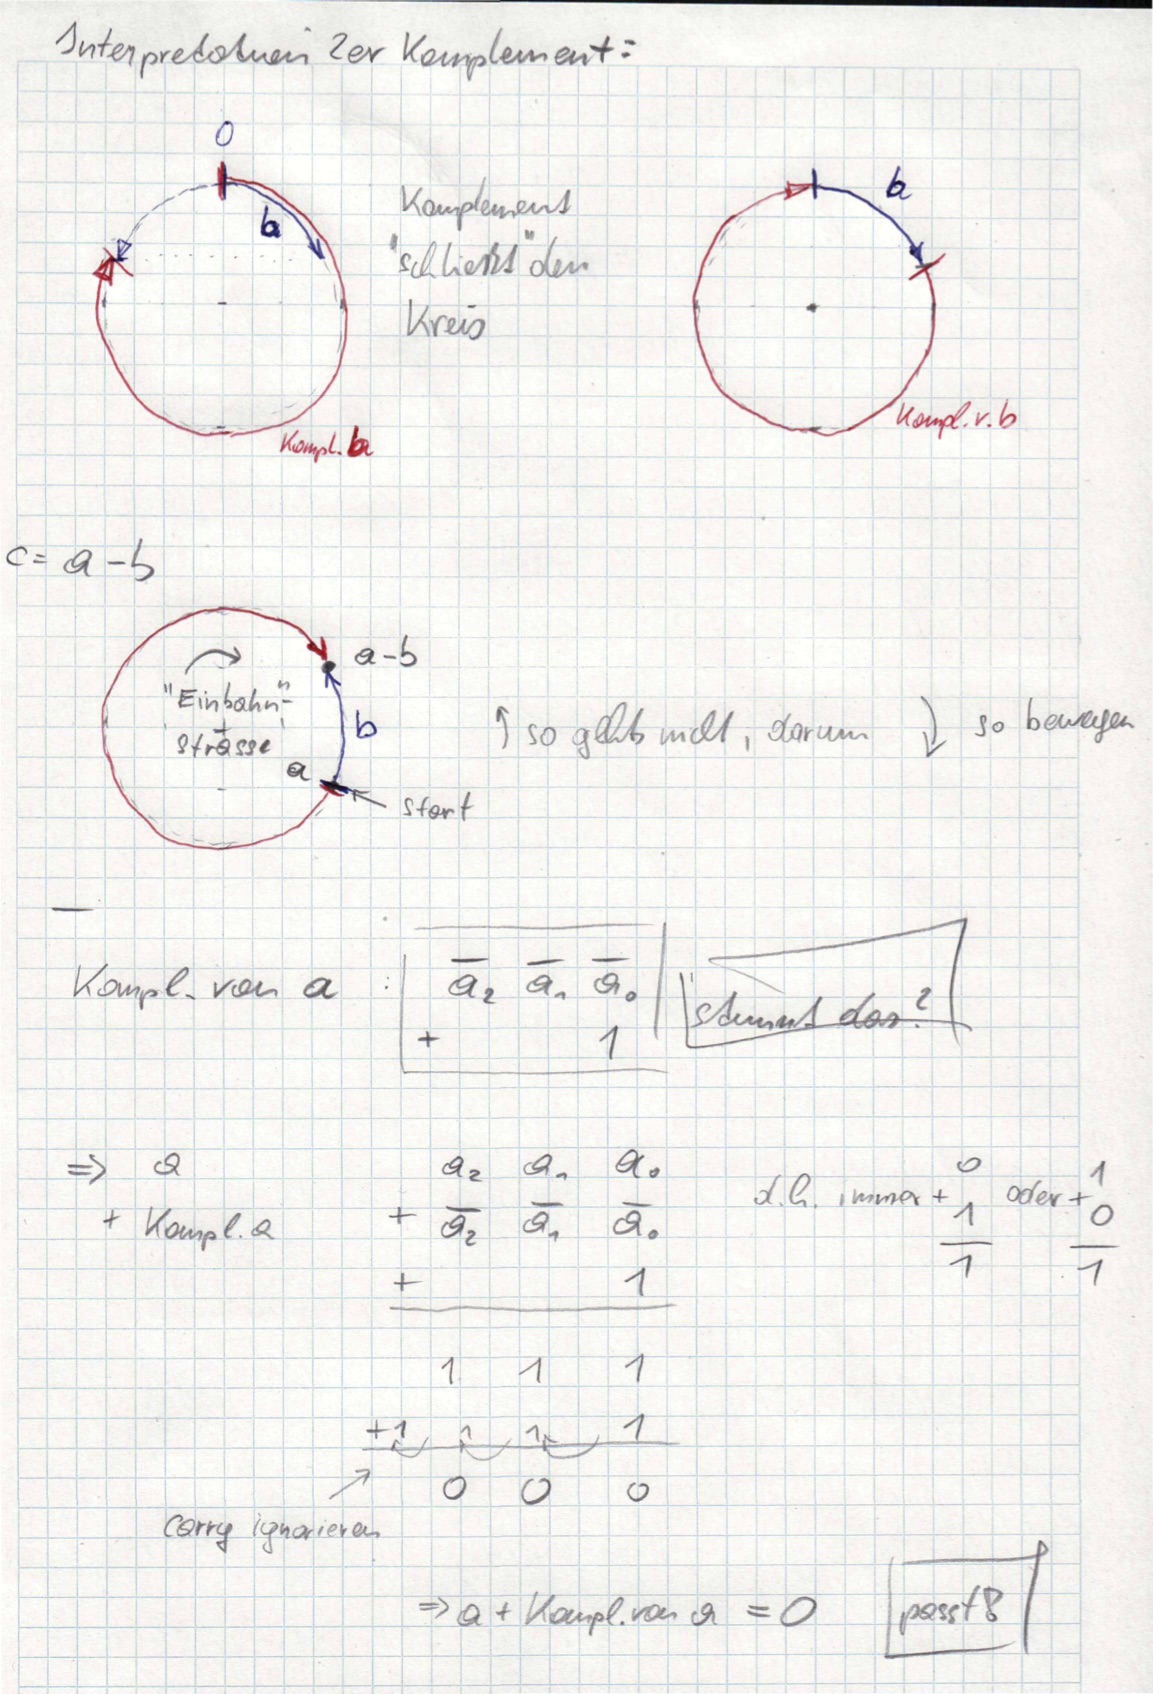 Interpretation 2er Komplement:
0
b
Komplement
"schliesst" den
Kreis
Kompl. b
b
Kompl. v. b
c = a - b
a - b
"Einbahn"-
strasse
b
a
start
↑ so gehts nicht, darum ↓ so bewegen
Kompl. von a : a̅₂ a̅₁ a̅₀
+ 1
"stimmt das?
⇒ a a₂ a₁ a₀
+ Kompl. a + a̅₂ a̅₁ a̅₀
+ 1
d.h. immer + 0 oder + 1
1 0
1 1
1 1 1
+1 1 1 1
0 0 0
carry ignorieren
⇒ a + Kompl. von a = 0
passt!